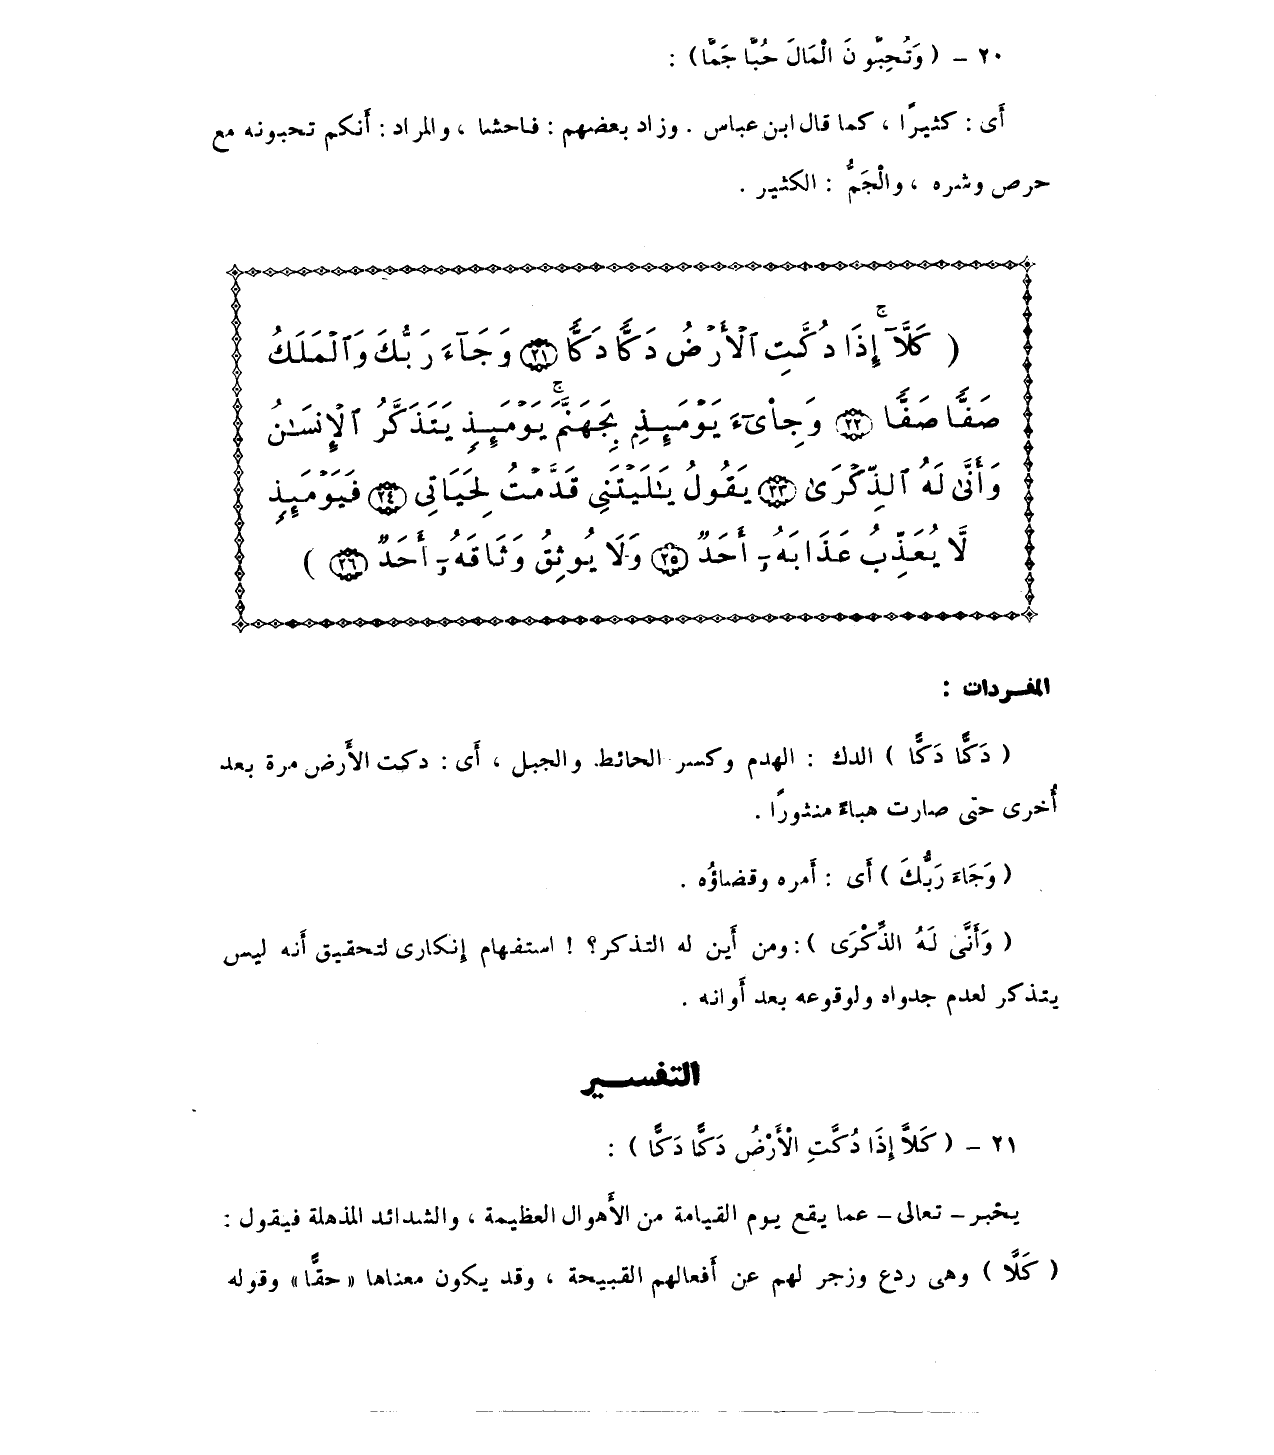 ٢٠ – ( وَتُحِبُّونَ الْمَالَ حُبًّا جَمًّا) :
أَى : كثيرًا ، كما قال ابن عباس . وزاد بعضهم : فاحشا ، والمراد : أَنكم تحبونه مع
حرص وشره ، والْجَمُّ : الكثير .
( كَلَّآ ۚ إِذَا دُكَّتِ ٱلْأَرْضُ دَكًّا دَكًّا ٢١ وَجَآءَ رَبُّكَ وَٱلْمَلَكُ
صَفًّا صَفًّا ٢٢ وَجِا۟ىٓءَ يَوْمَئِذٍۭ بِجَهَنَّمَ ۚ يَوْمَئِذٍ يَتَذَكَّرُ ٱلْإِنسَـٰنُ
وَأَنَّىٰ لَهُ ٱلذِّكْرَىٰ ٢٣ يَقُولُ يَـٰلَيْتَنِى قَدَّمْتُ لِحَيَاتِى ٢٤ فَيَوْمَئِذٍ
لَّا يُعَذِّبُ عَذَابَهُۥٓ أَحَدٌ ٢٥ وَلَا يُوثِقُ وَثَاقَهُۥٓ أَحَدٌ ٢٦ )
المفـردات :
( دَكًّا دَكًّا ) الدك : الهدم وكسر الحائط والجبل ، أَى : دكت الأَرض مرة بعد
أُخرى حتى صارت هباءً منثورًا .
( وَجَاءَ رَبُّكَ ) أَى : أَمره وقضاؤُه .
( وَأَنَّى لَهُ الذِّكْرَى ) : ومن أَين له التذكر؟ ! استفهام إِنكارى لتحقيق أَنه ليس
يتذكر لعدم جدواه ولوقوعه بعد أَوانه .
التفسـير
٢١ – ( كَلاَّ إِذَا دُكَّتِ الْأَرْضُ دَكًّا دَكًّا ) :
يخبر – تعالى – عما يقع يوم القيامة من الأَهوال العظيمة ، والشدائد المذهلة فيقول :
( كَلَّا ) وهى ردع وزجر لهم عن أَفعالهم القبيحة ، وقد يكون معناها « حقًّا » وقوله